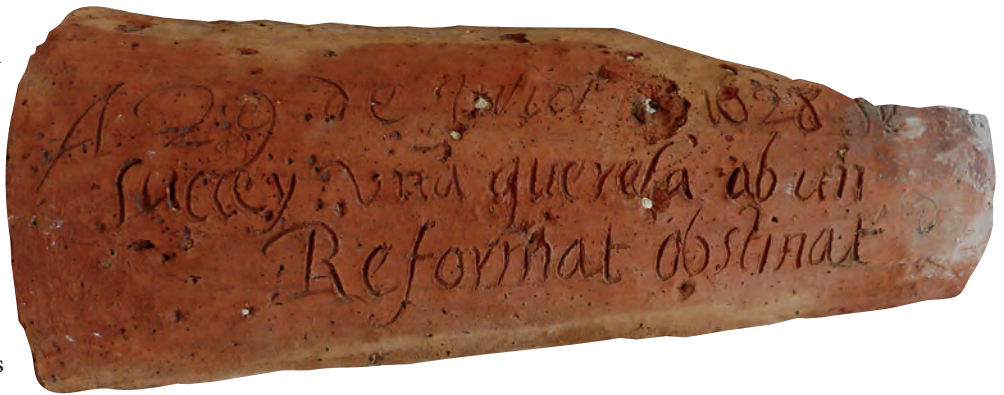 A 29 de Juliol 1828 se
succey una querela ab un
Reformat obstinat